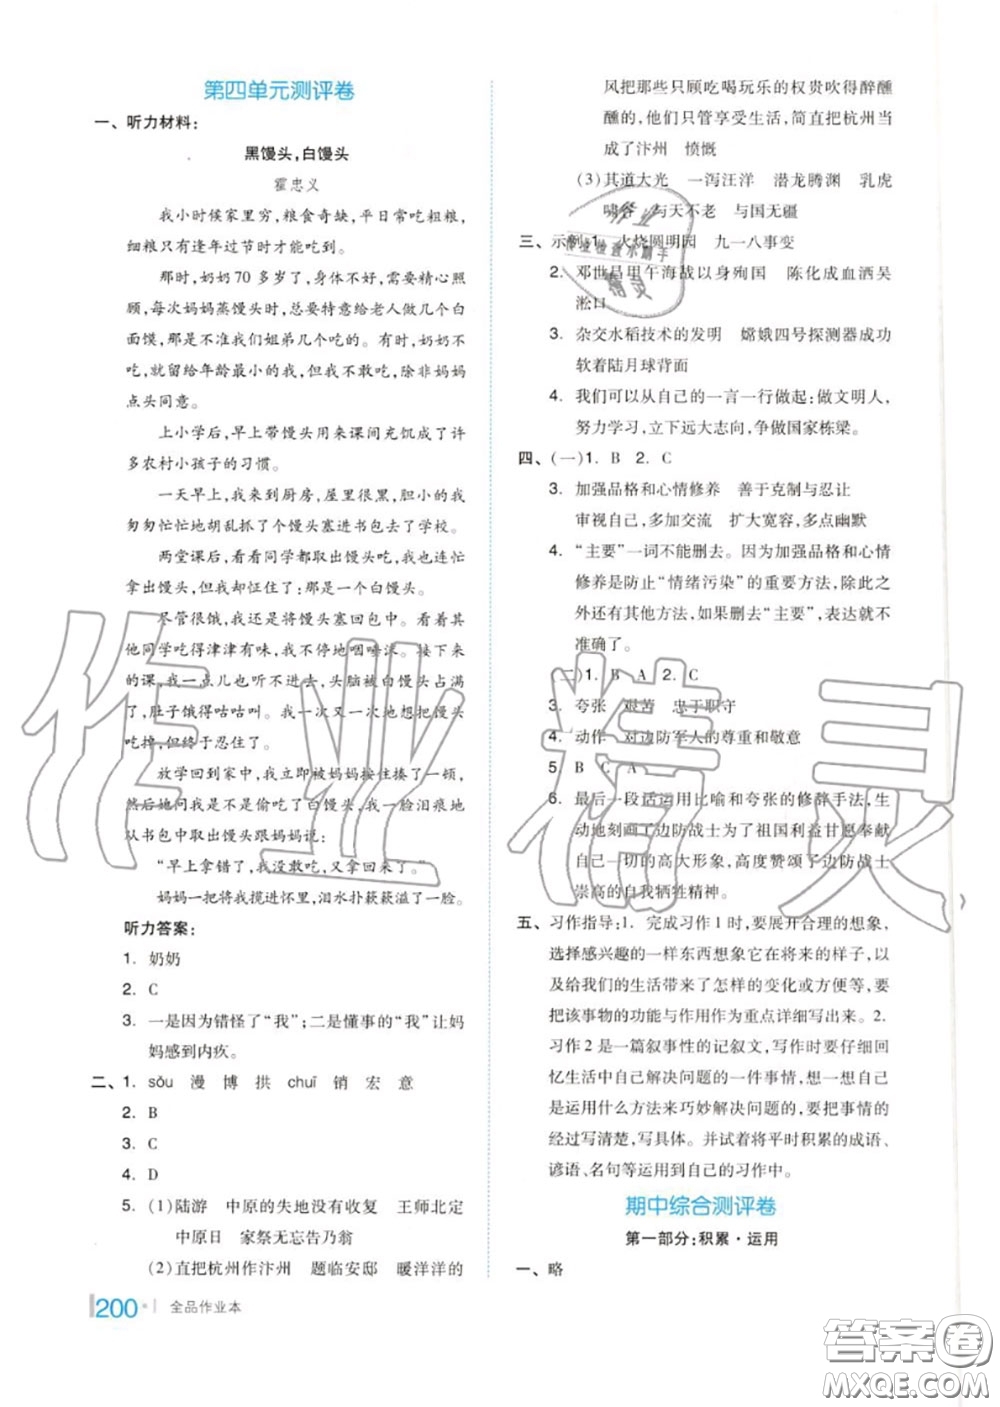 第四单元测评卷
一、听力材料：
黑馒头,白馒头
霍忠义
我小时候家里穷,粮食奇缺,平日常吃粗粮,
细粮只有逢年过节时才能吃到。
那时,奶奶70多岁了,身体不好,需要精心照
顾,每次妈妈蒸馒头时,总要特意给老人做几个白
面馍,那是不准我们姐弟几个吃的。有时,奶奶不
吃,就留给年龄最小的我,但我不敢吃,除非妈妈
点头同意。
上小学后,早上带馒头用来课间充饥成了许
多农村小孩子的习惯。
一天早上,我来到厨房,屋里很黑,胆小的我
匆匆忙忙地胡乱抓了个馒头塞进书包去了学校。
两堂课后,看看同学都取出馒头吃,我也连忙
拿出馒头,但我却怔住了:那是一个白馒头。
尽管很饿,我还是将馒头塞回包中。看着其
他同学吃得津津有味,我不停地咽唾沫。接下来
的课,我一点儿也听不进去,头脑被白馒头占满
了,肚子饿得咕咕叫。我一次又一次地想把馒头
吃掉,但终于忍住了。
放学回到家中,我立即被妈妈按住揍了一顿,
然后她问我是不是偷吃了白馒头,我一脸泪痕地
从书包中取出馒头跟妈妈说:
“早上拿错了,我没敢吃,又拿回来了。”
妈妈一把将我揽进怀里,泪水扑簌簌溢了一脸。
听力答案：
1. 奶奶
2. C
3. 一是因为错怪了“我”;二是懂事的“我”让妈
妈感到内疚。
二、1. sǒu 漫 博 拱 chuī 销 宏 意
2. B
3. C
4. D
5. (1)陆游 中原的失地没有收复 王师北定
中原日 家祭无忘告乃翁
(2)直把杭州作汴州 题临安邸 暖洋洋的
200 全品作业本
风把那些只顾吃喝玩乐的权贵吹得醉醺
醺的,他们只管享受生活,简直把杭州当
成了汴州 愤慨
(3)其道大光 一泻汪洋 潜龙腾渊 乳虎
啸谷 与天不老 与国无疆
三、示例:1. 火烧圆明园 九一八事变
2. 邓世昌甲午海战以身殉国 陈化成血洒吴
淞口
3. 杂交水稻技术的发明 嫦娥四号探测器成功
软着陆月球背面
4. 我们可以从自己的一言一行做起:做文明人,
努力学习,立下远大志向,争做国家栋梁。
四、(一)1. B 2. C
3. 加强品格和心情修养 善于克制与忍让
审视自己,多加交流 扩大宽容,多点幽默
4. “主要”一词不能删去。因为加强品格和心情
修养是防止“情绪污染”的重要方法,除此之
外还有其他方法,如果删去“主要”,表达就不
准确了。
(二)1. B A 2. C
3. 夸张 艰苦 忠于职守
4. 动作 对边防军人的尊重和敬意
5. B C A
6. 最后一段话运用比喻和夸张的修辞手法,生
动地刻画了边防战士为了祖国利益甘愿奉献
自己一切的高大形象,高度赞颂了边防战士
崇高的自我牺牲精神。
五、习作指导:1. 完成习作1时,要展开合理的想象,
选择感兴趣的一样东西想象它在将来的样子,以
及给我们的生活带来了怎样的变化或方便等,要
把该事物的功能与作用作为重点详细写出来。2.
习作2是一篇叙事性的记叙文,写作时要仔细回
忆生活中自己解决问题的一件事情,想一想自己
是运用什么方法来巧妙解决问题的,要把事情的
经过写清楚,写具体。并试着将平时积累的成语、
谚语、名句等运用到自己的习作中。
期中综合测评卷
第一部分:积累·运用
一、略
作业精灵
答案圈
MXQE.COM